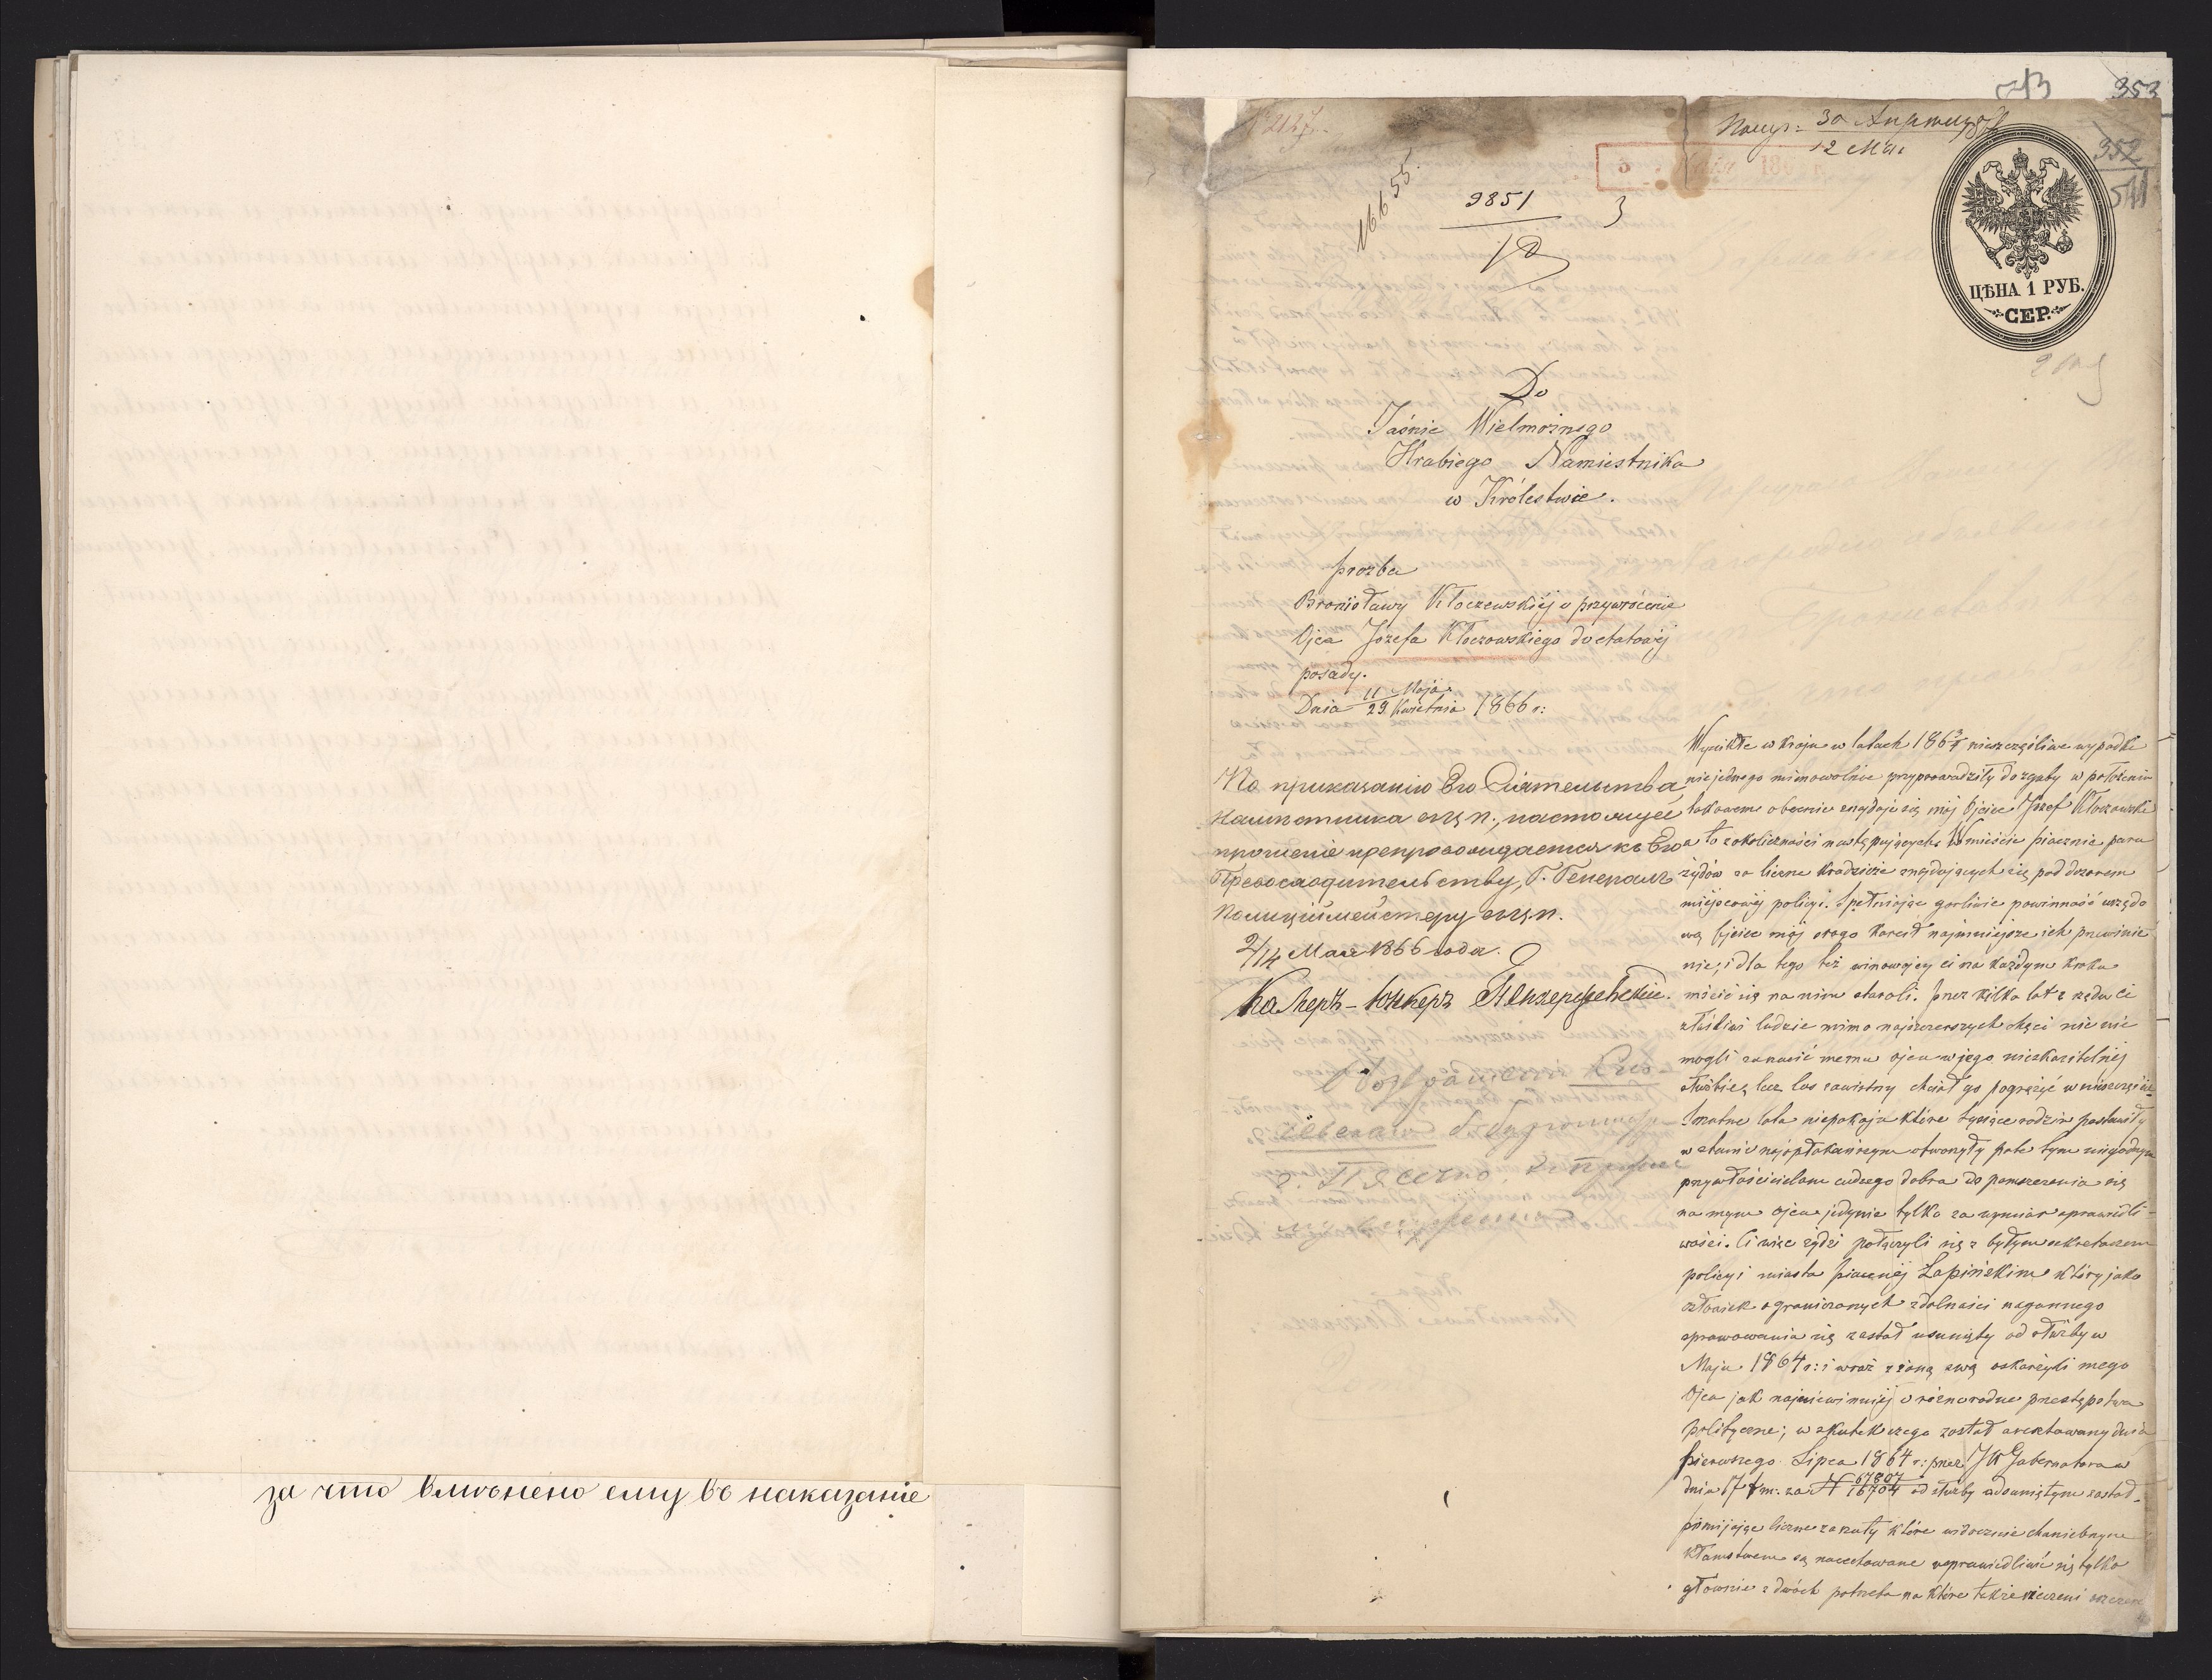 за что вмѣнено ему въ наказаніе
353
352
541
№ 2127.
Получ: 30 Апрѣля
12 Мая
5 Мая 186
16655.
9851
3
ЦѢНА 1 РУБ.
СЕР.
Do
Jaśnie Wielmożnego
Hrabiego Namiestnika
w Królestwie.
prozba
Bronisławy Kłoczewskiéj o przywrócenie
Ojca Józefa Kłoczowskiego do etatowéj
posady.
Dnia 11 Maja / 29 Kwietnia 1866 r:
По приказанію Его Сіятельства
Намѣстника настоящее
прошеніе препровождается къ Его
Превосходительству, Г. Генералъ
Полиціймейстеру
2/14 Мая 1866 года.
Камеръ-Юнкеръ
Wynikłe w kraju w latach 1863/4 nieszczęśliwe wypadki
niejednego mimowolnie przyprowadziły do zguby w położeniu
takowem obecnie znajduje się mój Ojciec Józef Kłoczowski
a to z okoliczności następujących: W mieście piasecznie paru
żydów za liczne kradzieże znajdujących się pod dozorem
miejscowéj policyi. Spełniając gorliwie powinność urzędo
wą Ojciec mój srogo karcił najmniejsze ich przewinie
nie; i dla tego też winowajcy ci na każdym kroku
mścić się na nim starali. przez kilka lat z rzędu ci
złośliwi ludzie mimo najszczerszych chęci nic nie
mogli zarzucić memu ojcu w jego nieskazitelnéj
służbie, lecz los zawistny chciał go pogrążyć w nieszczęście
Smutne lata niepokoju które tysiące rodzin postawiły
w stanie najopłakańszym otworzyły pole tym niegodnym
przywłaścicielom cudzego dobra do pomszczenia się
na mym ojcu jedynie tylko za wymiar sprawiedli-
wości. Ci więc żydzi połączyli się z byłym sekretarzem
policyi miasta piasecznéj Łapińskim który jako
człowiek ograniczonych zdolności nagannego
sprawowania się został usunięty od służby w
Maju 1864 r: i wraz z żoną swą oskarżyli mego
Ojca jak najniewinniéj o różnorodne przestępstwa
polityczne; w skutek czego został aresztowany dnia
pierwszego Lipca 1864 r: przez JW Gubernatora w
dniu 17 t m: za N 67807/16704 od służby usuniętym został.
pomijając liczne zarzuty które widocznie haniebnym
kłamstwem są nacechowane usprawiedliwię się tylko
głównie z dwóch potrzeba na które także